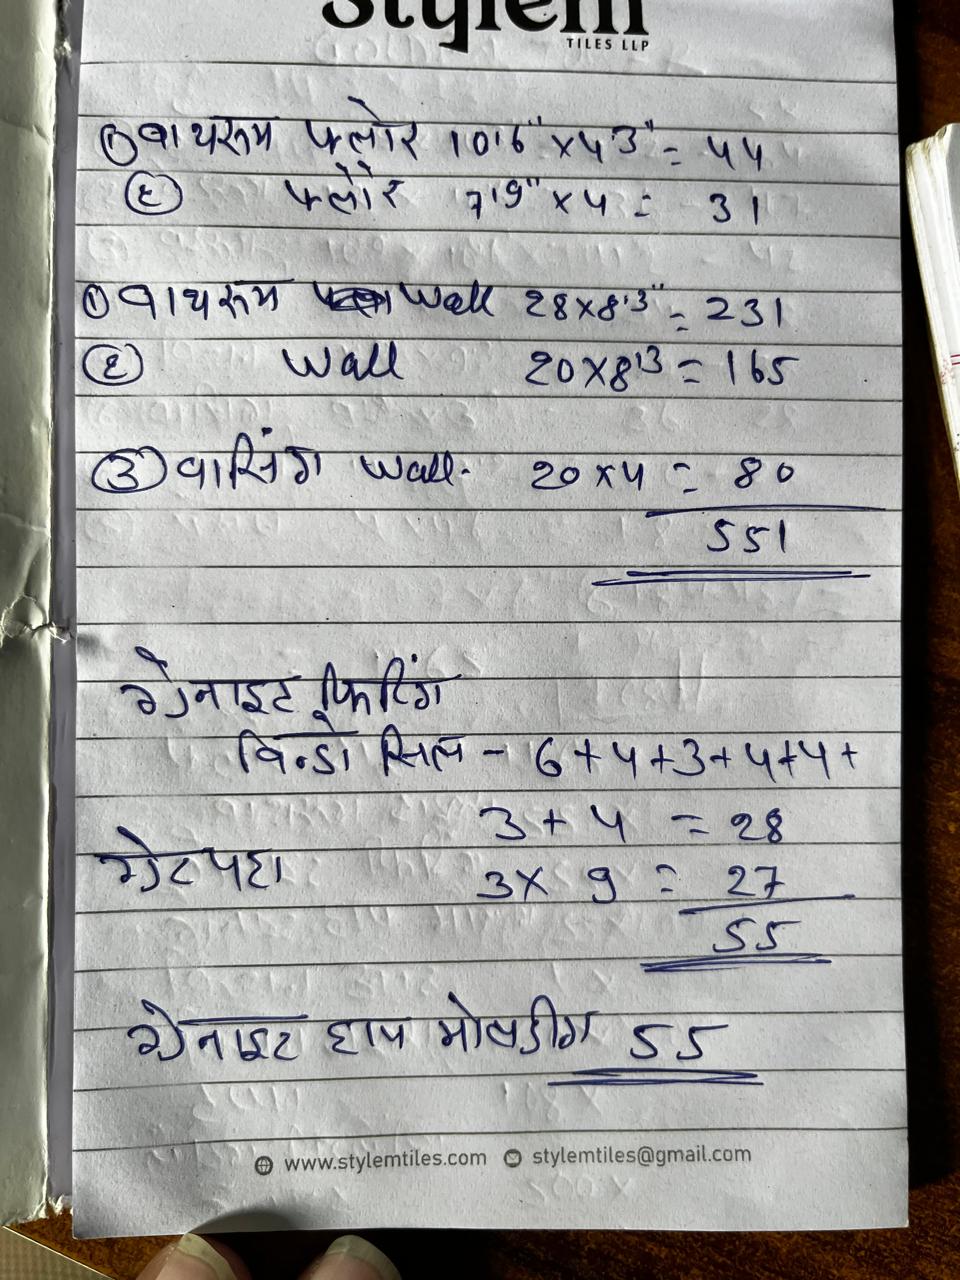 Stylem
TILES LLP
① बाथरूम फ्लोर 10'6" x 4'3" = 44
② फ्लोर 7'9" x 4 = 31
① बाथरूम Wall 28 x 8'3" = 231
② Wall 20 x 8'3 = 165
③ वासिंग Wall- 20 x 4 = 80
551
ग्रेनाइट फिटिंग
विन्डो सिल - 6 + 4 + 3 + 4 + 4 +
3 + 4 = 28
गेट पट्टा 3 x 9 = 27
55
ग्रेनाइट हाप मोल्डींग 55
www.stylemtiles.com stylemtiles@gmail.com